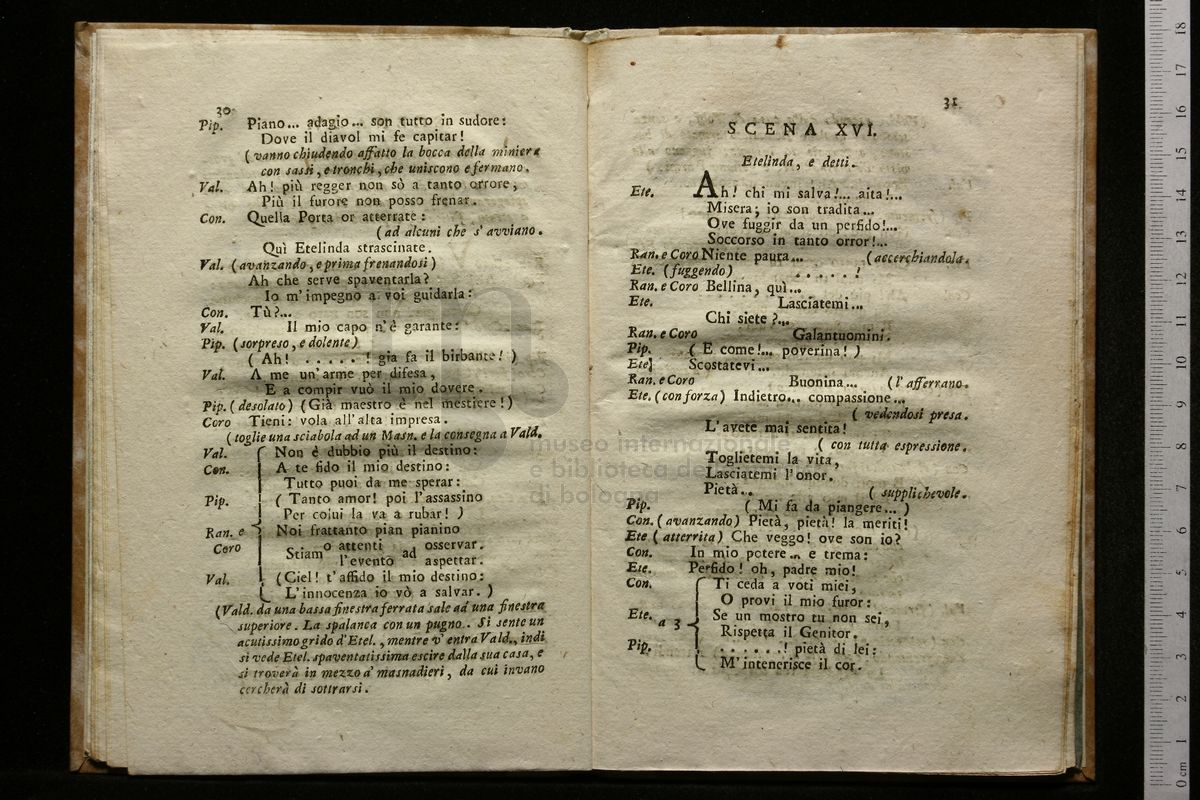 30
Pip. Piano... adagio... son tutto in sudore:
Dove il diavol mi fe capitar!
(vanno chiudendo affatto la bocca della miniera
con sassi, e tronchi, che uniscono e fermano.
Val. Ah! più regger non sò a tanto orrore,
Più il furore non posso frenar.
Con. Quella Porta or atterrate:
(ad alcuni che s'avviano.
Quì Etelinda strascinate.
Val. (avanzando, e prima frenandosi)
Ah che serve spaventarla?
Io m'impegno a voi guidarla:
Con. Tù?...
Val. Il mio capo n'è garante:
Pip. (sorpreso, e dolente)
(Ah! . . . . . ! gia fa il birbante! )
Val. A me un'arme per difesa,
E a compir vuò il mio dovere.
Pip. (desolato) (Già maestro è nel mestiere!)
Coro Tieni: vola all'alta impresa.
(toglie una sciabola ad un Masn. e la consegna a Vald.
Val. Non è dubbio più il destino:
Con. A te fido il mio destino:
Tutto puoi da me sperar:
Pip. (Tanto amor! poi l'assassino
Per colui la va a rubar! )
Ran. e Coro Noi frattanto pian pianino
Stiamo attenti ad osservar.
l'evento aspettar.
Val. (Ciel! t'affido il mio destino:
L'innocenza io vò a salvar. )
(Vald. da una bassa finestra ferrata sale ad una finestra
superiore. La spalanca con un pugno. Si sente un
acutissimo grido d'Etel., mentre v'entra Vald., indi
si vede Etel. spaventatissima escire dalla sua casa, e
si troverà in mezzo a' masnadieri, da cui invano
cercherà di sottrarsi.
31
SCENA XVI.
Etelinda, e detti.
Ete. Ah! chi mi salva!... aita!...
Misera; io son tradita...
Ove fuggir da un perfido!...
Soccorso in tanto orror!...
Ran. e Coro Niente paura... (accerchiandola.
Ete. (fuggendo) . . . . . !
Ran. e Coro Bellina, quì...
Ete. Lasciatemi...
Chi siete?...
Ran. e Coro Galantuomini.
Pip. (E come!... poverina!)
Ete. Scostatevi...
Ran. e Coro Buonina... (l'afferrano.
Ete. (con forza) Indietro... compassione...
(vedendosi presa.
L'avete mai sentita!
(con tutta espressione.
Toglietemi la vita,
Lasciatemi l'onor.
Pietà... (supplichevole.
Pip. (Mi fa da piangere...)
Con. (avanzando) Pietà, pietà! la meriti!
Ete (atterrita) Che veggo! ove son io?
Con. In mio potere... e trema:
Ete. Perfido! oh, padre mio!
Con. Ti ceda a voti miei,
O provi il mio furor:
Ete. a 3 Se un mostro tu non sei,
Rispetta il Genitor.
Pip. . . . . . . ! pietà di lei:
M'intenerisce il cor.
museo internazionale
e biblioteca della musica
di bologna
18
17
16
15
14
13
12
11
10
9
8
7
6
5
4
3
2
1
0 cm